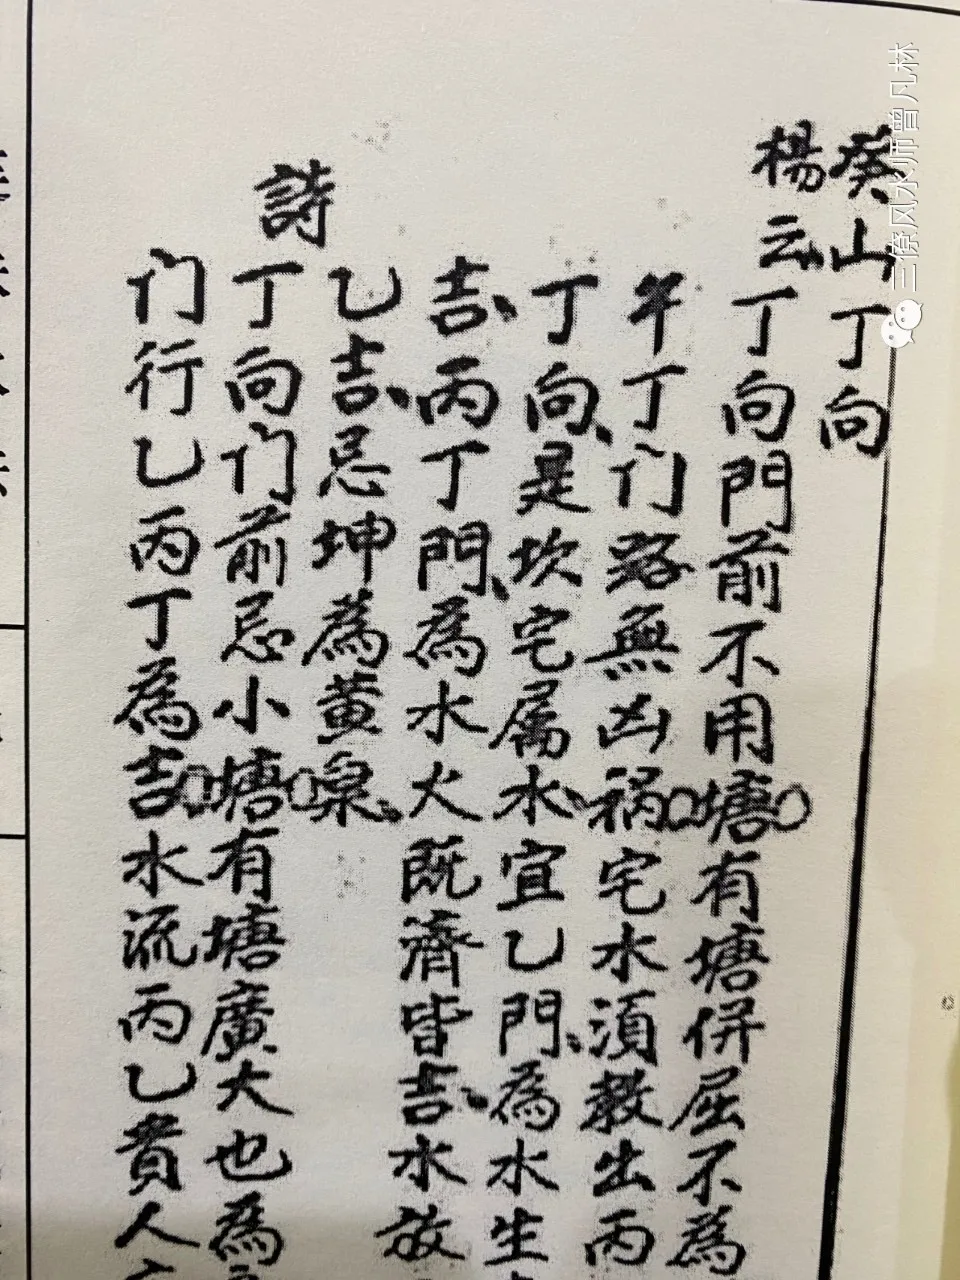 癸山丁向
楊云丁向門前不用塘有塘併屈不為
午丁门路無凶祸宅水須教出丙
丁向是坎宅屬水宜乙門為水生
吉丙丁門為水火既濟皆吉水放
乙吉忌坤為黄泉
詩
丁向门前忌小塘有塘廣大也為
门行乙丙丁為吉水流丙乙貴人
三僚风水师曾凡林